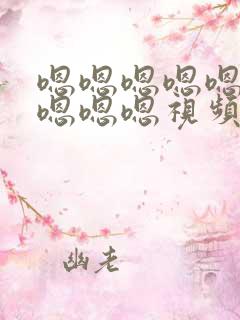 嗯嗯嗯嗯嗯
嗯嗯嗯视频
幽老